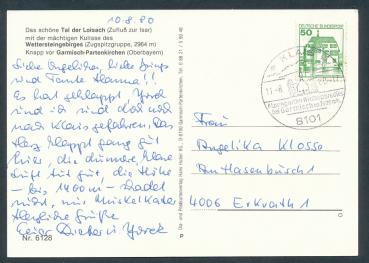 10.8.80
Das schöne Tal der Loisach (Zufluß zur Isar)
mit der mächtigen Kulisse des
Wettersteingebirges (Zugspitzgruppe, 2964 m)
Knapp vor Garmisch-Partenkirchen (Oberbayern)
Liebe Angelika, liebe
und Tante Hanna!!
Es hat geklappt,
und ich sind doch noch
nach Klais gefahren, das
Herz klappt ganz gut
hier, die dünnere, klare
Luft tut gut, die Höhe
– bis 1400 m – schadet
nicht, nur Muskelkater
Herzliche Grüße
Euer Dieter u.
Nr. 6128
DEUTSCHE BUNDESPOST
50
8101
Frau
Angelika Klosso
Am Hasenbusch 1
4006 Erkrath 1